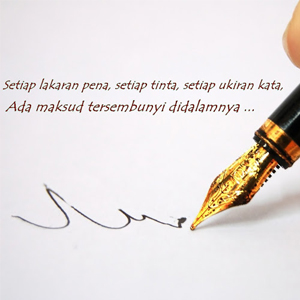 Setiap lakaran pena, setiap tinta, setiap ukiran kata,
Ada maksud tersembunyi didalamnya ...